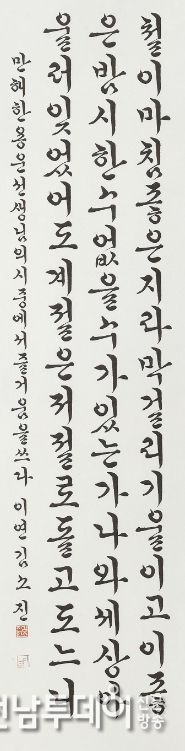 철이마침좋은지라막걸리기울이고이좋
은밤시한수없을수가있는가나와세상아
울러잊었어도계절은저절로돌고도느니
만해한용운선생님의시중에서즐거움을쓰다 이연 김
전남투데이